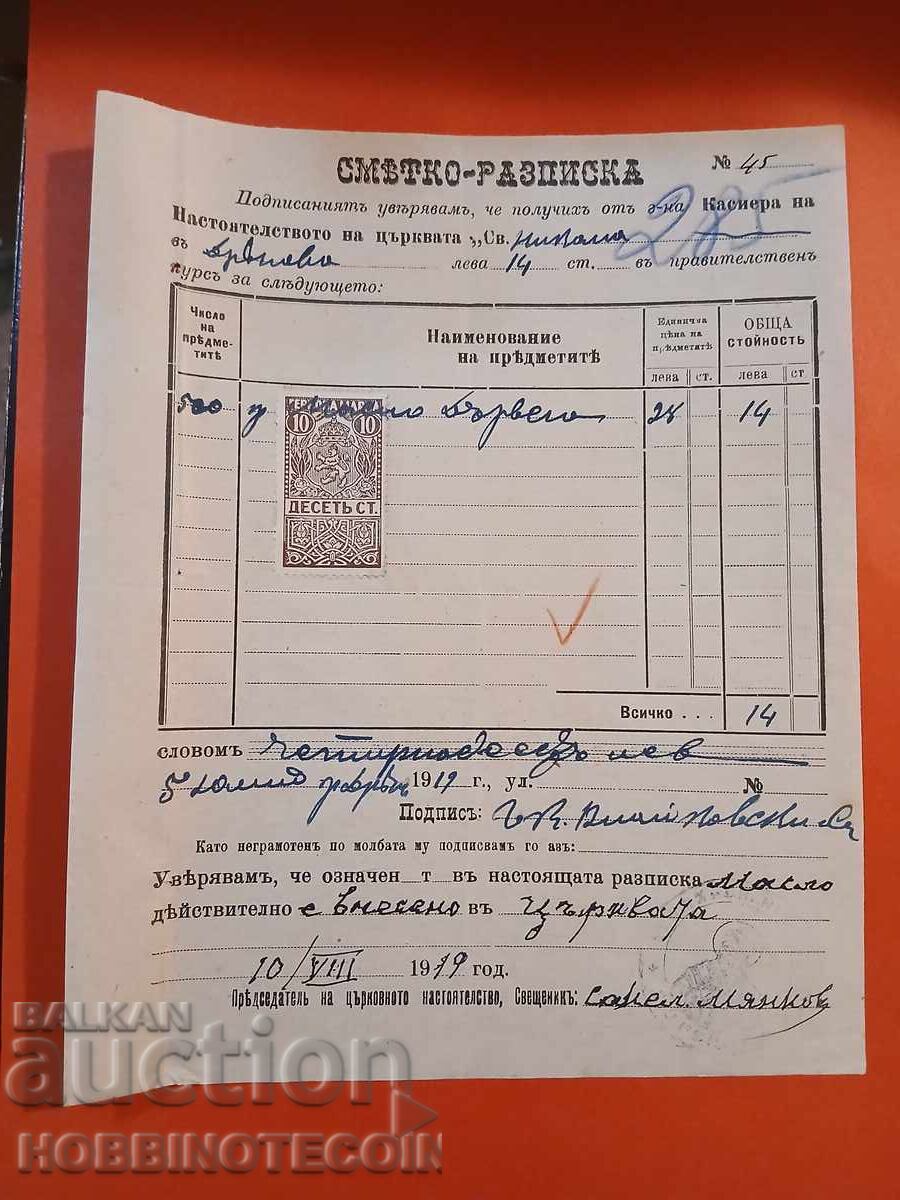 СМѢТКО-РАЗПИСКА
№ 45
285
Подписаниятъ увѣрявамъ, че получихъ отъ г-на Касиера на
Настоятелството на църквата „Св. Никола
въ Дряново лева 14 ст. въ правителственъ
курсъ за слѣдующето:
Число на прѣдме-титѣ
Наименование на прѣдметитѣ
Единична цѣна на прѣдметитѣ
ОБЩА СТОЙНОСТЬ
лева ст. лева ст
500 гр Масло дървено 28 14
10 10
ДЕСЕТЬ СТ.
Всичко . . . 14
словомъ четиринадесеть лев
1919 г., ул. №
Подписъ:
Като неграмотен по молбата му подписвамъ го азъ:
Увѣрявамъ, че означен т въ настоящата разписка Масло
дѣйствително е внесено въ църквата
10/VIII 1919 год.
Прѣдседатель на църковното настоятелство, Свещеникъ: Мянков
BALKAN
auction
HOBBINOTECOIN